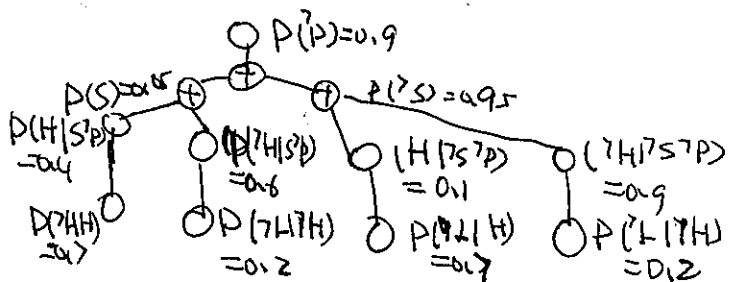 P(?P)=0.9
P(S)=0.05
P(?S)=0.95
P(H|S?P)
=0.4
P(?H|S?P)
=0.6
(H|?S?P)
=0.1
(?H|?S?P)
=0.9
=0.7
P(?L|?H)
=0.2
=0.7
P(?L|?H)
=0.2